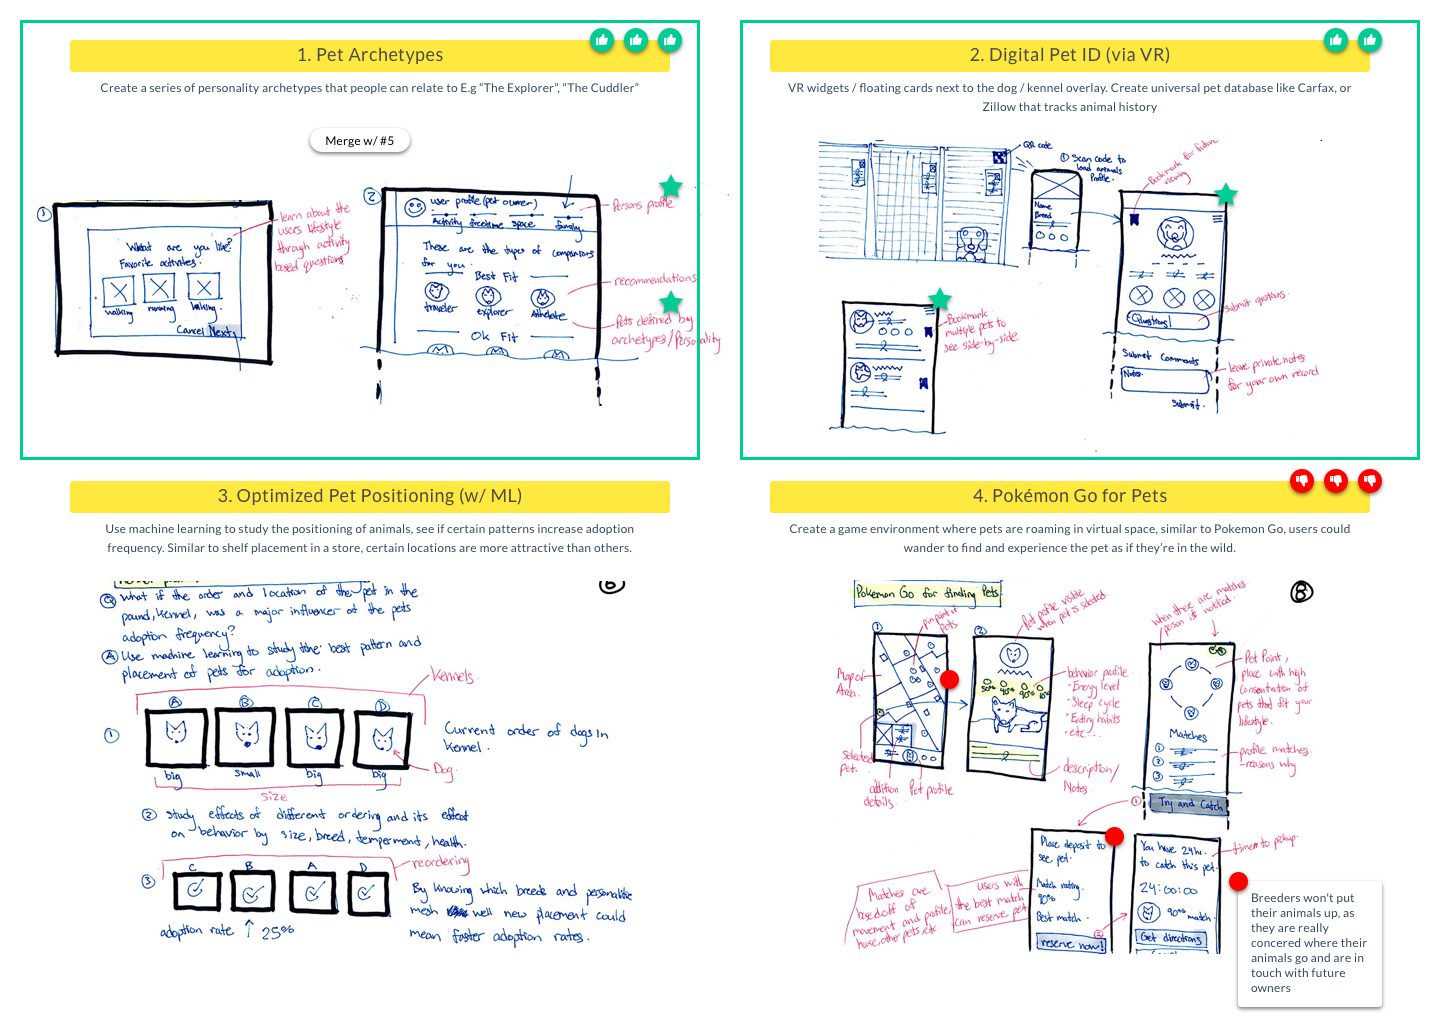 1. Pet Archetypes
Create a series of personality archetypes that people can relate to E.g “The Explorer”, “The Cuddler”
Merge w/ #5
1
What are you like?
Favorite activities.
walking running biking
Cancel Next
learn about the
users lifestyle
through activity
based questions
2
user profile (pet owner)
Activity freetime space family
These are the types of companions
for you.
Best Fit
traveler explorer Athelete
Ok Fit
Persons profile
recommendations
Pets defined by
archetypes/Personality
2. Digital Pet ID (via VR)
VR widgets / floating cards next to the dog / kennel overlay. Create universal pet database like Carfax, or
Zillow that tracks animal history
QR code
1 Scan code to
load animals
Profile.
Name
Breed
Bookmark for future
viewing
Questions?
Submit questions.
Submit Comments
Notes.
Submit.
leave private notes
for your own record
Bookmark
multiple pets to
see side-by-side
3. Optimized Pet Positioning (w/ ML)
Use machine learning to study the positioning of animals, see if certain patterns increase adoption
frequency. Similar to shelf placement in a store, certain locations are more attractive than others.
Q What if the order and location of the pet in the
pound, kennel, was a major influencer of the pets
adoption frequency?
A Use machine learning to study the best pattern and
placement of pets for adoption.
Kennels.
A B C D
1
big small big big
size
Dog.
Current order of dogs in
Kennel.
2 Study effects of different ordering and its effect
on behavior by size, breed, temperment, health.
reordering
3
C B A D
adoption rate ↑ 25%
By knowing which breeds and personalities
mesh well new placement could
mean faster adoption rates.
4. Pokémon Go for Pets
Create a game environment where pets are roaming in virtual space, similar to Pokemon Go, users could
wander to find and experience the pet as if they’re in the wild.
Pokemon Go for finding Pets
8
1
pinpoint of
pets
Map of
Area.
Selected
Pet.
addition
details.
Pet profile
2
Pet profile visible
when pet is selected.
50% 90% 90% 10%
behavior profile
-Energy level
-Sleep cycle
-Eating habits
-etc...
description/
Notes.
when there are matches
person is notified.
Pet Point,
place with high
Consentration of
pets that fit your
lifestyle.
Matches
1
2
3
profile matches
-reasons why
Try and Catch
1
Place deposit to
see pet.
Match rating
90%
Best match.
reserve now!
2
Matches are
based off of
movement and profile,
house, other pets etc.
users with
the best match
can reserve pet
You have 24hr.
to catch this pet.
24:00:00
90% match.
Get directions
time to pickup.
Breeders won't put
their animals up, as
they are really
concered where their
animals go and are in
touch with future
owners